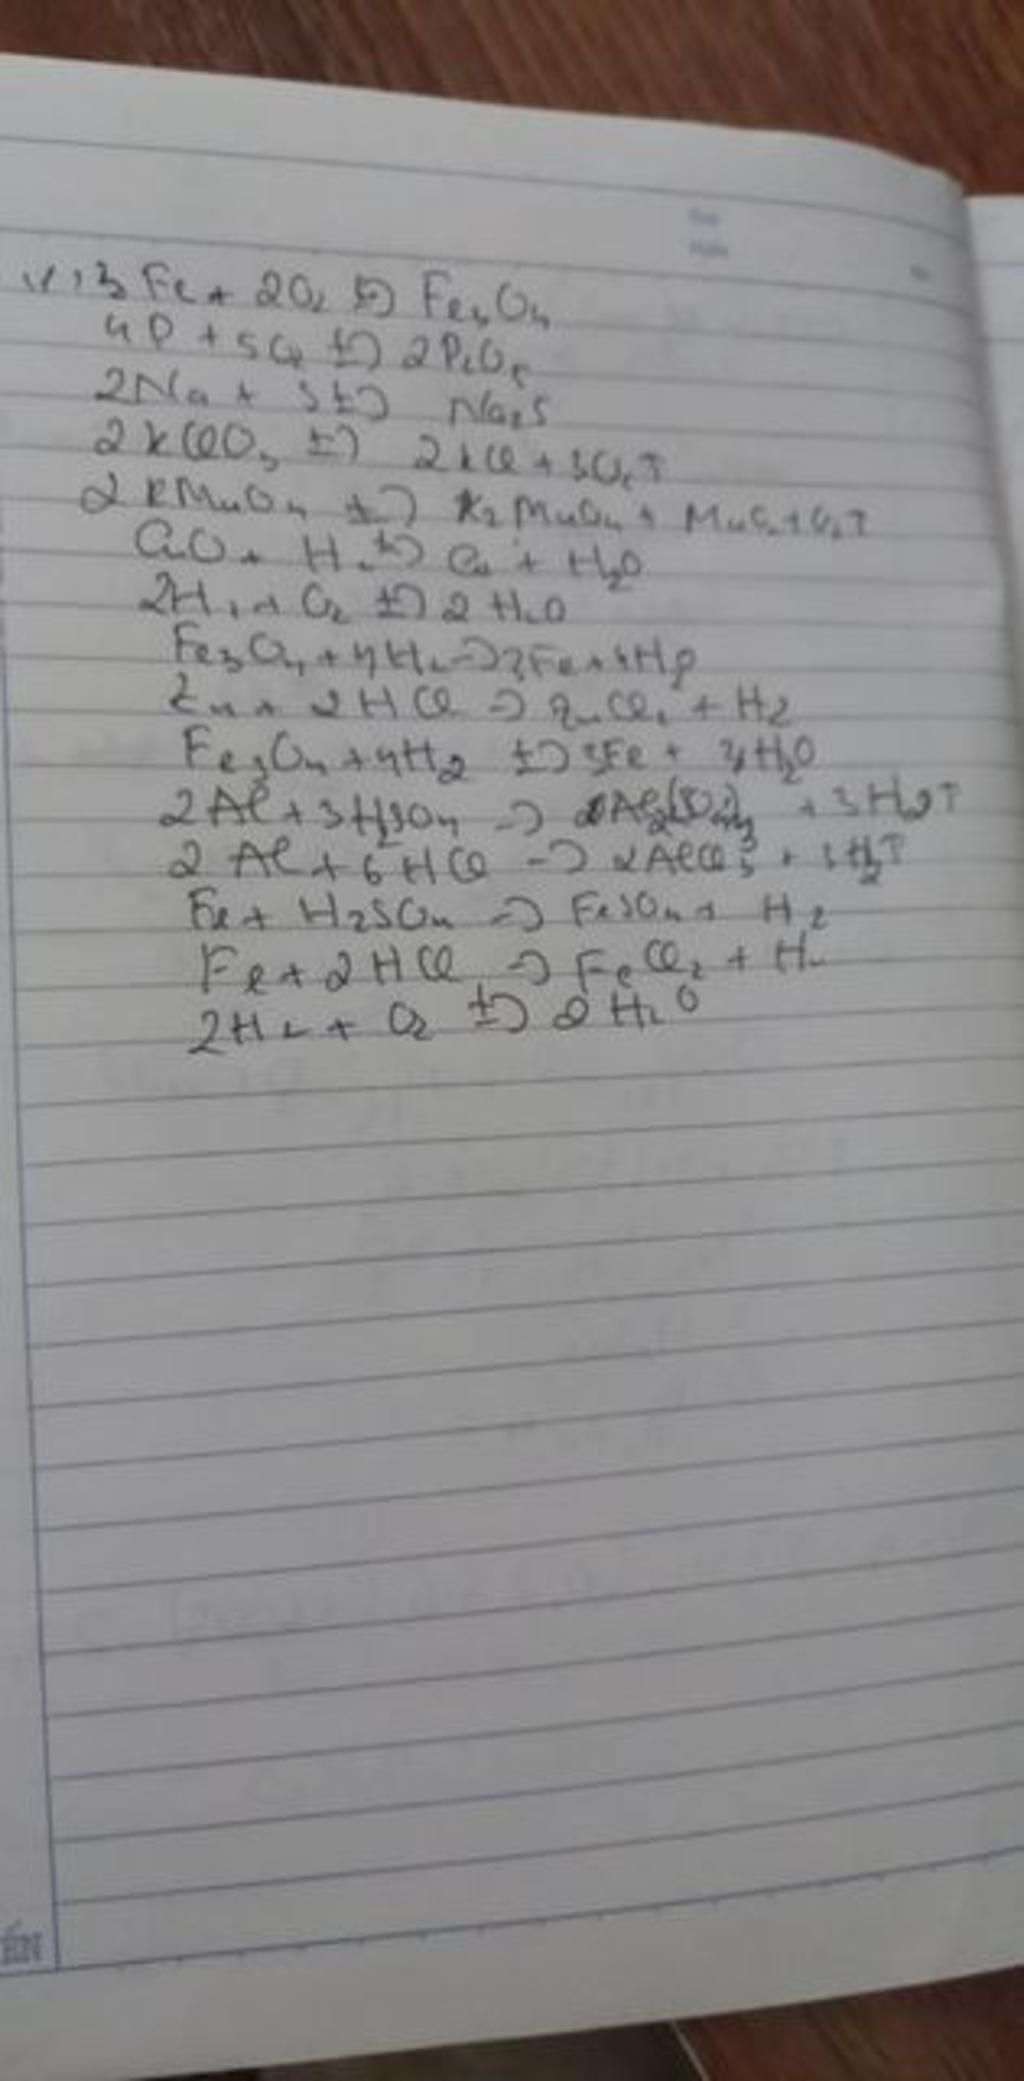 3Fe + 2O2 t°→ Fe3O4
4P + 5O2 t°→ 2P2O5
2Na + S t°→ Na2S
2KClO3 t°→ 2KCl + 3O2↑
2KMnO4 t°→ K2MnO4 + MnO2 + O2↑
CuO + H2 t°→ Cu + H2O
2H2 + O2 t°→ 2H2O
Fe3O4 + 4H2 → 3Fe + 4H2O
Zn + 2HCl → ZnCl2 + H2
Fe3O4 + 4H2 t°→ 3Fe + 4H2O
2Al + 3H2SO4 → Al2(SO4)3 + 3H2↑
2Al + 6HCl → 2AlCl3 + 3H2↑
Fe + H2SO4 → FeSO4 + H2
Fe + 2HCl → FeCl2 + H2
2H2 + O2 t°→ 2H2O
ÉN